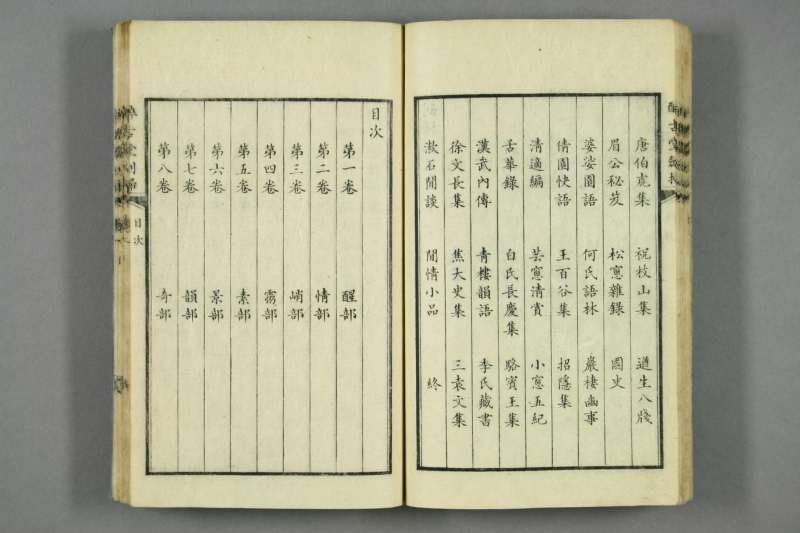 唐伯虎集 祝枝山集 遵生八牋
眉公秘笈 松窻雜錄 國史
婆娑園語 何氏語林 巖棲幽事
倩園快語 王百谷集 招隱集
清適編 芸窻清賞 小窻五紀
舌華錄 白氏長慶集 駱賓王集
漢武內傳 青樓韻語 李氏藏書
徐文長集 焦太史集 三袁文集
漱石閒談 閒情小品 終
目次
第一卷 醒部
第二卷 情部
第三卷 峭部
第四卷 靈部
第五卷 素部
第六卷 景部
第七卷 韻部
第八卷 奇部
目次